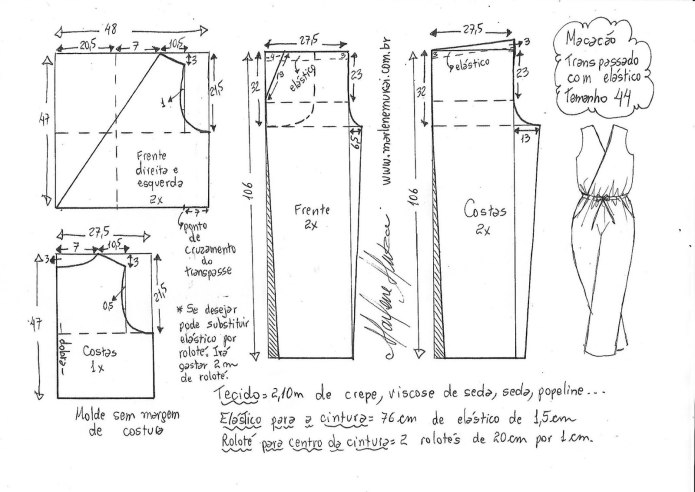 48
20,5
7
10,5
3
1
21,5
47
Frente
direita e
esquerda
2x
7
ponto
de
cruzamento
do
transpasse
27,5
4
3
elástico
32
23
6,5
106
Frente
2x
www.marlenemukai.com.br
Marlene Mukai
27,5
3
3
elástico
32
23
13
106
Costas
2x
Macacão
Transpassado
com elástico
Tamanho 44
27,5
7
10,5
3
3
0,5
21,5
47
dobra
Costas
1x
Molde sem margem
de costura
* Se desejar
pode substituir
elástico por
rolotê. Irá
gastar 2m
de rolotê.
Tecido = 2,10m de crepe, viscose de seda, seda, popeline...
Elástico para a cintura = 76cm de elástico de 1,5cm
Rolotê para centro da cintura = 2 rolotês de 20cm por 1cm.